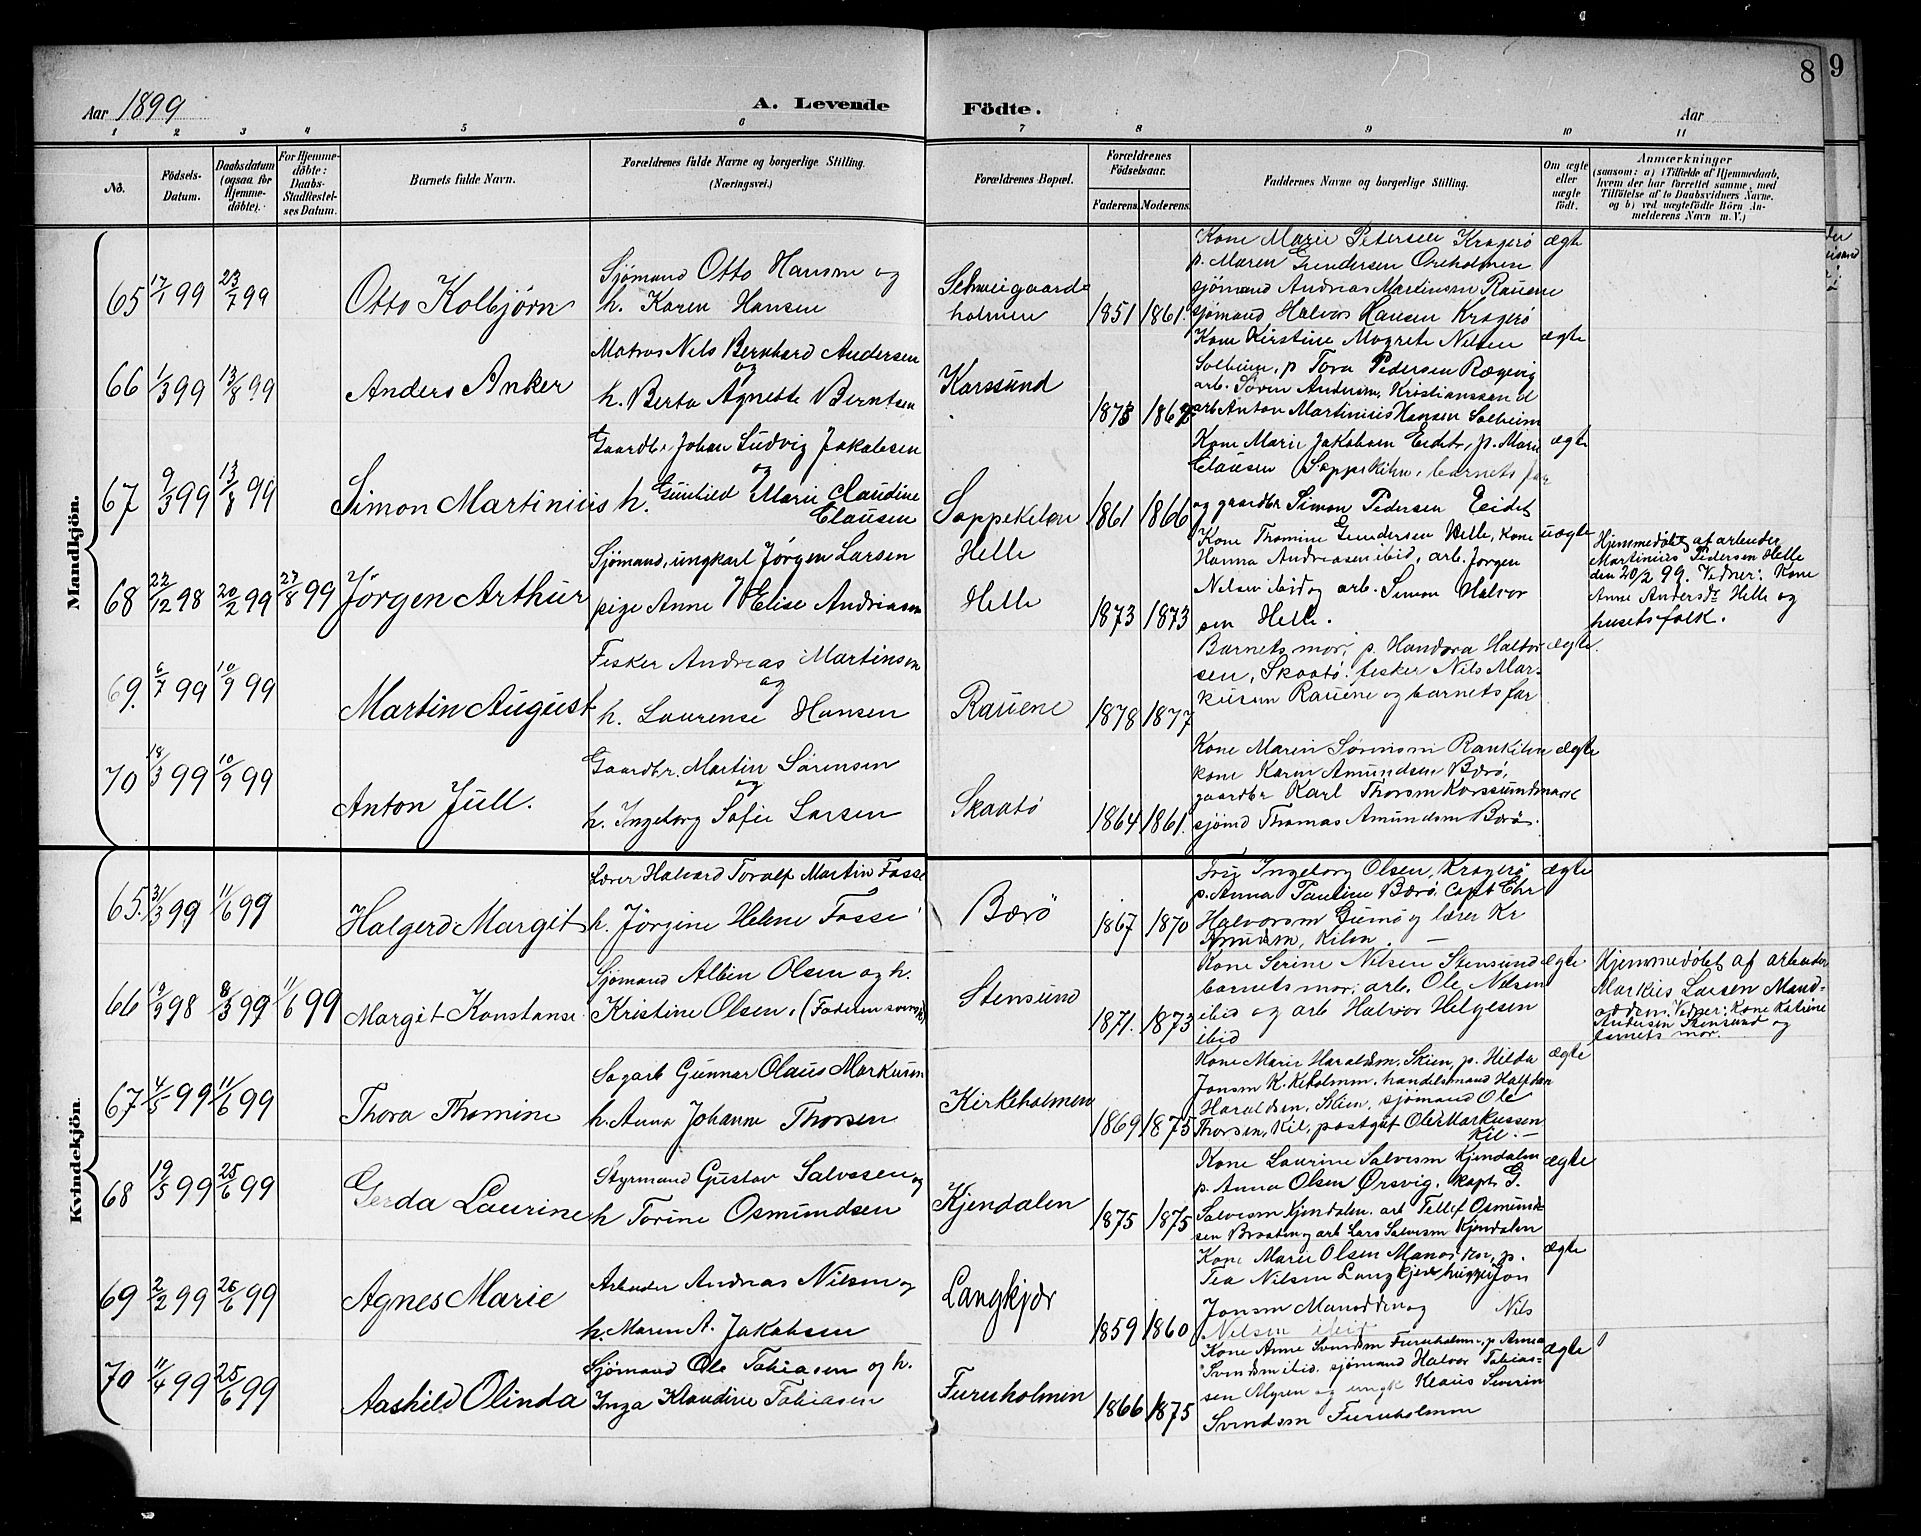 8
9
Aar 1899
A. Levende
Födte.
Aar
1 2 3 4 5 6 7 8 9 10 11
No.
Födsels-Datum.
Daabsdatum (ogsaa for Hjemme-döbte).
For Hjemme-döbte: Daabs-Stadfæstel-ses Datum.
Barnets fulde Navn.
Forældrenes fulde Navne og borgerlige Stilling.
(Næringsvei.)
Forældrenes Bopæl.
Forældrenes Födselsaar.
Faderens. Moderens.
Faddernes Navne og borgerlige Stilling.
Om ægte eller uægte födt.
Anmærkninger
(saasom: a) i Tilfælde af Hjemmedaab,
hvem der har forrettet samme, med
Tilföielse af to Daabsvidners Navne.
og b) ved uægtefödte Börn An-
melderens Navn m. V.)
Mandkjön.
65 17/1 99 23/7 99
Otto Kolbjörn
Sjømand Otto Hansen og
h. Karen Hansen
Schweigaards-
holmen
1851 1861.
Kone Marie Petersen Kragerø
p. Maren Gundersen Oreholmen
sjømand Andreas Martinsen Rauene
sjømand Halvor Hansen Kragerø
ægte
66 1/3 99 13/8 99
Anders Anker
Matros Nils Bernhard Andersen
og
h. Berta Agnette Berntsen
Karssund
1873 1867
Kone Kirstine Mogrete Nilsen
Solheim, p. Tora Pedersen Rægevig
arb. Søren Andersen, Kristianssand
arb Anton Martinius Hansen Solheim
ægte
67 9/3 99 13/8 99
Simon Martinius
Gaardbr. Johan Ludvig Jakobsen
og
h. Gunhild Marie Claudine
Clausen
Soppekilen
1861 1866
Kone Marie Jakobsen Eidet, p. Marie
Clausen Soppekilen, barnets far
og gaardbr Simon Pedersen Eidet
ægte
68 22/12 98 20/2 99 27/8 99
Jörgen Arthur
Sjømand, ungkarl Jørgen Larsen
pige Anne Elise Andreasen
Helle
Helle
1873 1873
Kone Thomine Gundersen Helle, Kone
Hanna Andreasen ibid, arb. Jørgen
Nilsen ibid og arb. Simon Halvor
sen Helle.
uægte
Hjemmedøbt af arbeider
Martinius Pedersen Helle
den 20/2 99. Vidner: Kone
Anne Andersdr Helle og
husetsfolk.
69. 6/7 99 10/9 99
Martin August
Fisker Andreas Martinsen
og
h. Laurense Hansen
Rauene
1878 1877
Barnets mor, p. Handora Halvor-
sen, Skaatø. fisker Nils Mar-
kusen Rauene og barnets far
ægte.
70 18/3 99 10/9 99
Anton Jull.
Gaardbr. Martin Sørensen
og
h. Ingeborg Sofie Larsen
Skaatø
1864 1861.
Kone Maren Sørensen Rankilen
kone Karen Amundsen Bærø,
gaardbr Karl Thorsen Korssund
sjømd Thomas Amundsen Bærø.
ægte
Kvindekjön
65. 31/3 99 11/6 99
Halgerd Margit
Lærer Halvard Toralf Martin Fosse
h. Jörgine Helene Fosse
Bærö
1867 1870
Ingeborg Olsen, Kragerø
p. Anna Pauline Bærø, Capt Chr
Halvorsen Gumø og lærer Kr
Knudsen, Kilen. —
ægte
66 98 8/3 99 11/6 99
Margit Konstanse
Sjømand Albin Olsen og h.
Kristine Olsen.
Stensund
1871. 1873
Kone Serine Nilsen Stensund
barnets mor, arb. Ole Nilsen
ibid og arb Halvor Helgesen
ibid
ægte.
Hjemmedøbt af arbeider
Markus Larsen Mand-
odden. Vidner: Kone Katrine
Andersen Stensund og
barnets mor.
67 4/5 99 11/6 99
Thora Thomine
Sagarb Gunnar Olaus Markusen
h. Anna Johanne Thorsen
Kirkeholmen
1869 1875
Kone Marie Haraldsen, Skien, p. Hilda
Jonsen K.keholmen. handelsmand Halfdan
Haraldsen, Skien, sjømand Ole
Thorsen, Kil, postgut Ole Markussen
Kil. —
ægte
68 19/5 99 25/6 99
Gerda Laurine
Styrmand Gustav Salvesen og
h Torine Osmundsen
Kjendalen
1875 1875
Kone Laurine Salvesen Kjendalen
p. Anna Olsen Ørsvig, kapt. G.
Salvesen Kjendalen. arb Tellef Osmund-
sen Braaten og arb Lars Salvesen Kjendalen
ægte
69 2/2 99 25/6 99
Agnes Marie
Arbeider Andreas Nilsen og
h. Maren A. Jakobsen
Langkjær
1859 1860
Kone Marie Olsen p.
Tea Nilsen Langkjær Jon
Jonsen Manodden og Nils
Nilsen ibid
ægte
70 11/4 99 25/6 99
Aashild Olinda
Sjømand Ole Tobiasen og h.
Inga Klaudine Tobiasen
Furuholmen
1866 1875
Kone Anne Svendsen Furuholmen, p. Anna
Svendsen ibid. sjømand Halvor Tobias-
sen Myren og ungk Klaus Severin
Svendsen Furuholmen
ægte